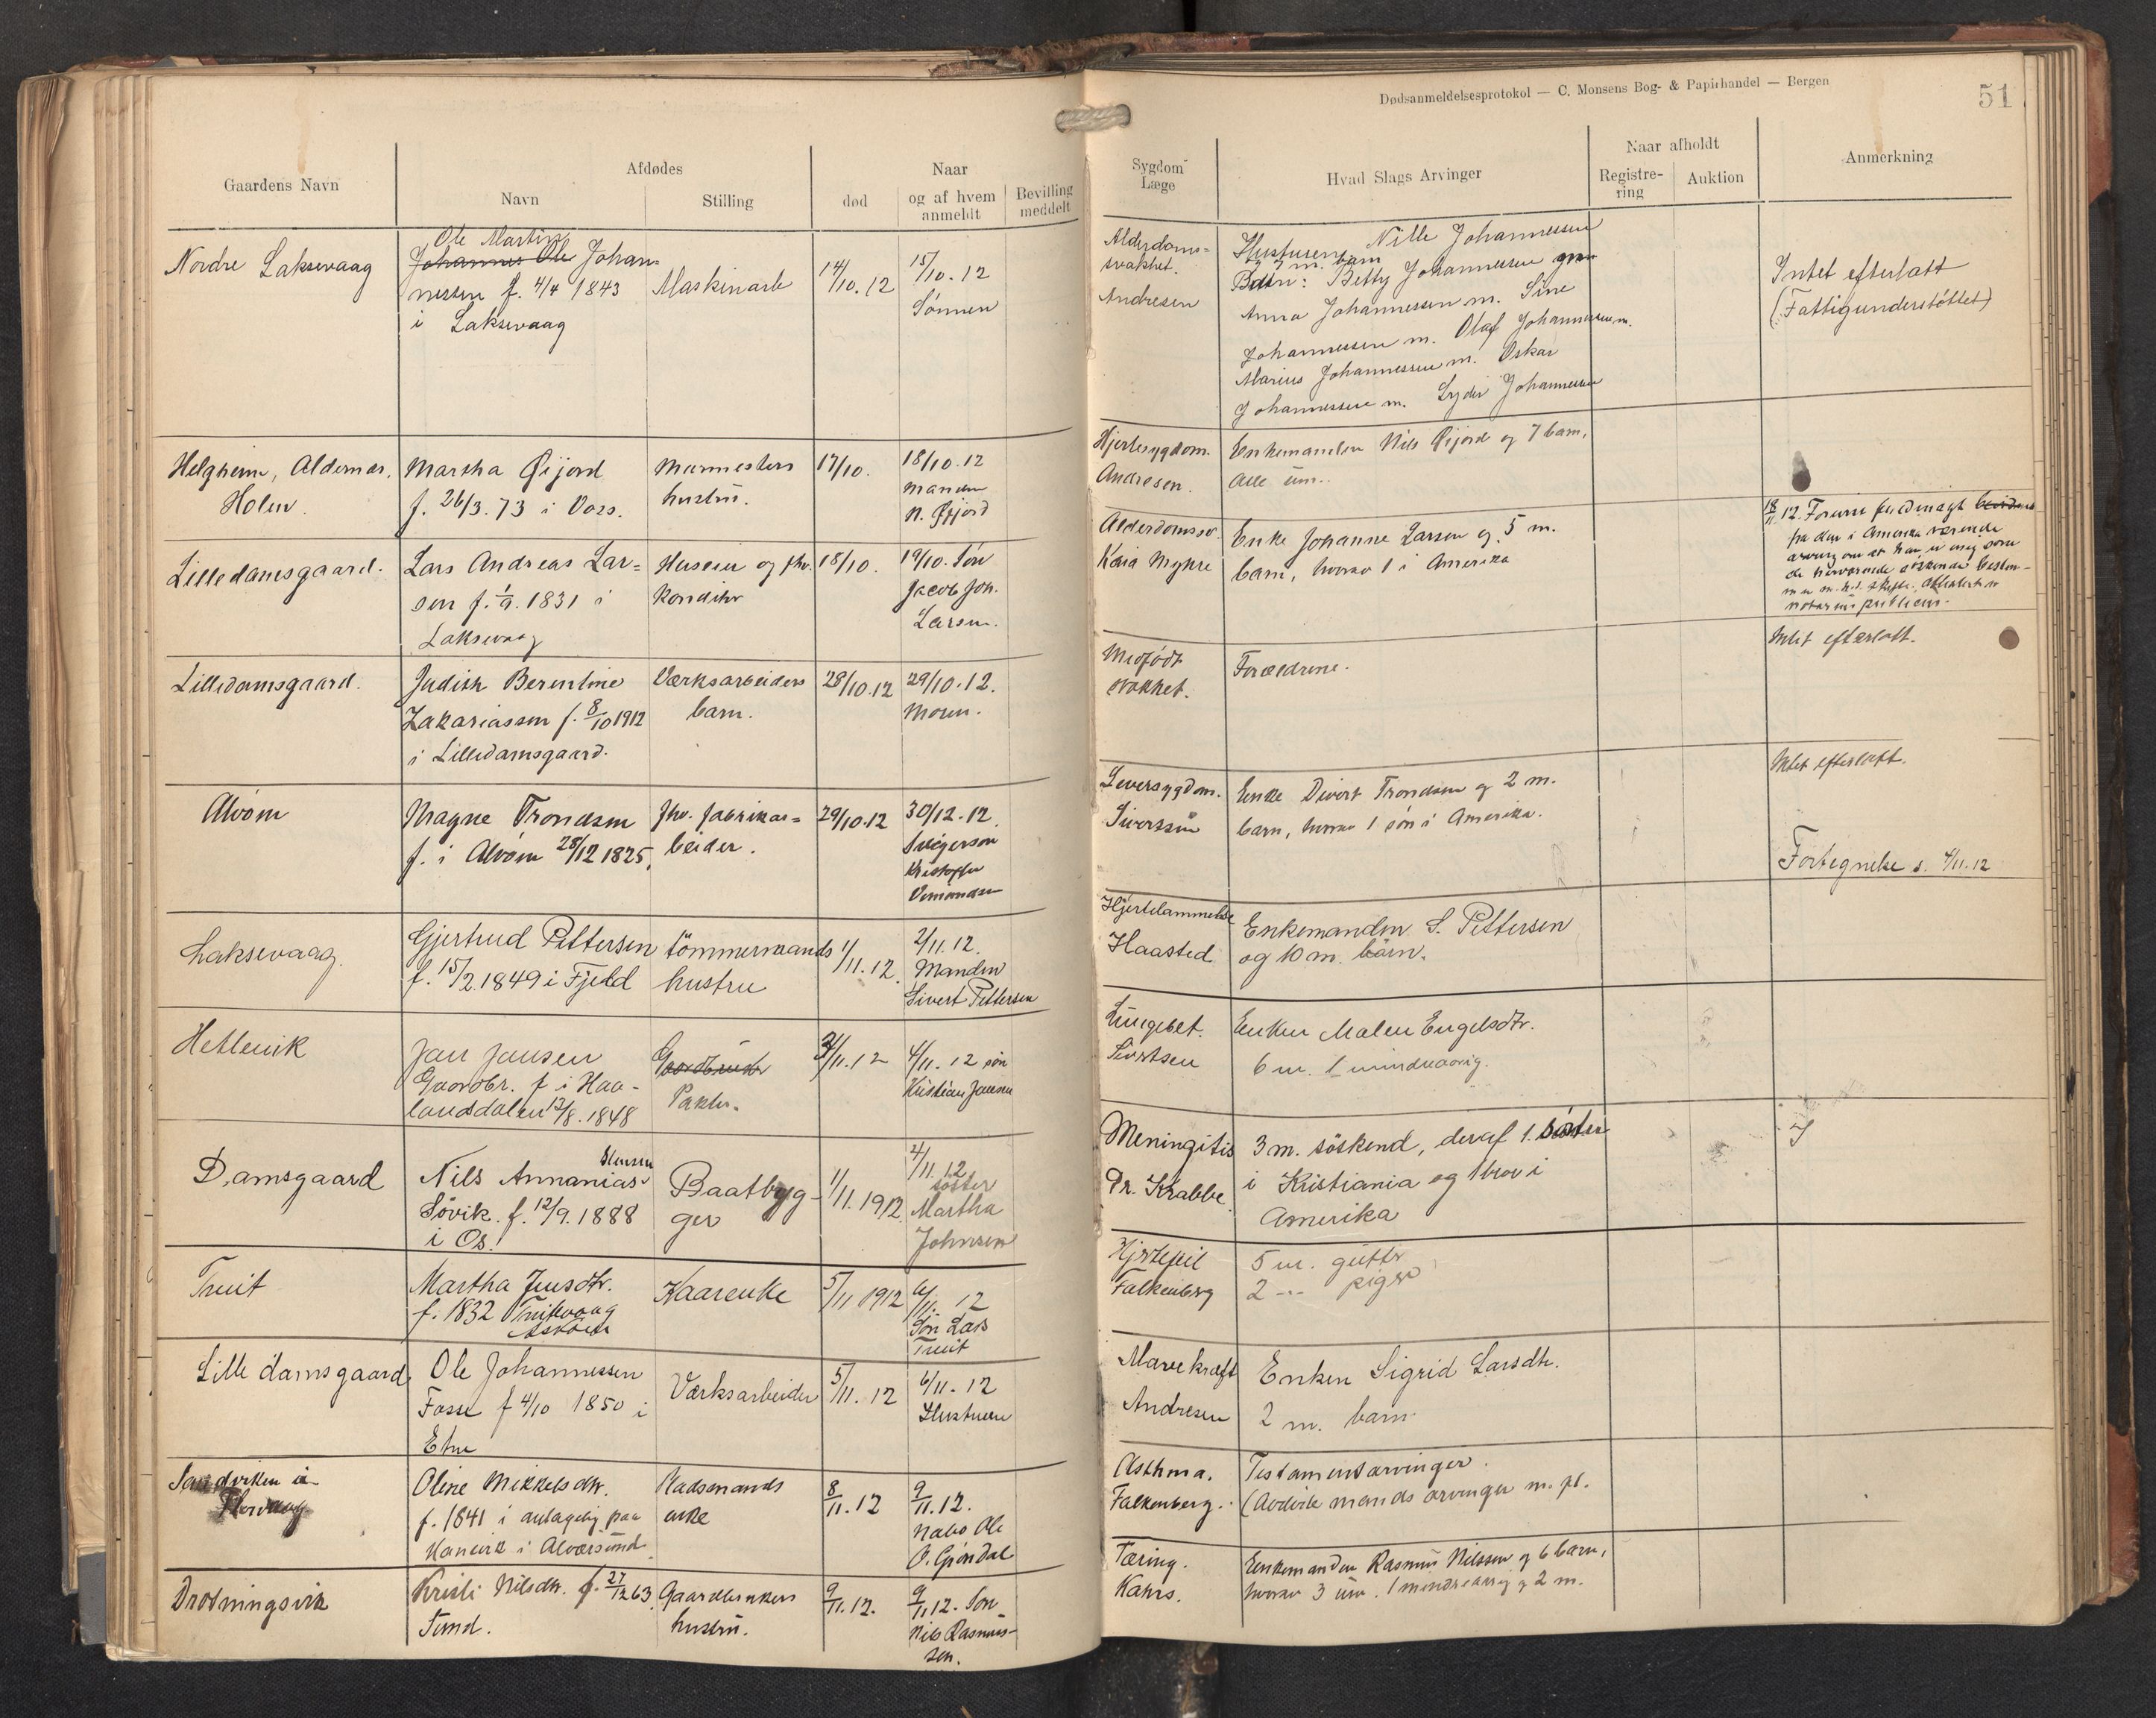 Dødsanmeldelsesprotokol — C. Monsens Bog- & Papirhandel — Bergen
51
Gaardens Navn
Afdødes
Navn
Stilling
død
Naar
og af hvem
anmeldt
Bevilling
meddelt
Sygdom
Læge
Hvad Slags Arvinger
Naar afholdt
Registre-
ring
Auktion
Anmerkning
Nordre Laksevaag
Ole Martin
Johannes Ole Johan=
nessen f. 4/4 1843
i Laksevaag
Maskinarb
14/10.12
15/10.12
Sønnen
Alderdoms=
svakhet.
Andresen
Hustruen Nille Johannessen
7 m. barn
Børn: Betty Johannessen
Anna Johannessen m. Sine
Johannessen m. Olaf Johannessen m.
Marius Johannessen m. Oskar
Johannessen m. Lyder Johannessen
Intet efterlatt
(Fattigunderstøttet)
Helgheim, Aldernæs.
Holen.
Martha Øijord
f. 26/3.73 i Voss.
Murmesters
hustru.
17/10.
18/10.12
Manden
N. Øijord
Hjertesygdom.
Andresen.
Enkemanden Nils Øijord og 7 barn,
alle um.
Lilledamsgaard.
Lars Andreas Lar=
sen f. 1/9. 1831 i
Laksevaag
Huseier og fhv.
Konditor
18/10.
19/10. Søn
Jacob Joh.
Larsen.
Alderdomssv.
Kaia Myhre
Enke Johanne Larsen og 5 m.
barn, hvorav 1 i Amerika
18/11.12. Foreviser fuldmagt
fra den i Amerika værende
arving om at han er enig som
de herværende søskende bestem-
mer m.h.t. skifte. Attestert av
notarius publicus.
Lilledamsgaard.
Judith Berentine
Zakariassen f. 8/10 1912
i Lilledamsgaard.
Værksarbeiders
barn.
28/10.12
29/10.12.
Moren.
Medfødt
svakhet.
Forældrene.
Intet efterlatt.
Alvøen
Magne Trondsen
f. i Alvøen 28/12 1825,
fhv. fabrikar=
beider.
29/10.12
30/12.12.
Svigersøn
Kristoffer
Leversygdom.
Siverssen
Enke Divert Trondsen og 2 m.
barn, hvorav 1 søn i Amerika.
Intet efterlatt.
Fortegnelse s. 4/11.12
Laksevaag.
Gjertrud Pettersen
f. 15/2.1849 i Fjeld
Tømmermands
hustru
1/11.12.
2/11.12.
Manden
Sivert Pettersen
Hjertelammelse
Haasted
Enkemanden S. Pettersen
og 10 m. børn.
Hetlevik
Jan Jansen
Gaardbr. f i Haa-
landsdalen 13/8.1848
Gaardbruker
Pakter.
3/11.12
4/11.12 søn
Kristian Jansen
Lungebet.
Sivertsen
Enken Malen Engelsdtr.
6 m. 1 mindreaarig.
Damsgaard
Nils Annanias
Søvik. f. 12/9. 1888
i Os.
Baatbyg-
ger
1/11.1912
4/11.12
søster
Martha
Johnsen
Meningitis
Dr. Krabbe
3 m. søskend, deraf 1. søster
i Kristiania og 1 bror i
Amerika
Truit
Martha Jensdtr.
f. 1832
Askøen
Kaarenke
5/11 1912
6/11. 12
Søn Lars
Truit
Hjertefeil
Falkenberg
5 m. gutter
2 -"- piger
Lille damsgaard
Ole Johannessen
Fosse f 4/10 1850 i
Etne
Værksarbeider
5/11. 12
6/11. 12
Hustruen
Mavekræft
Andresen
Enken Sigrid Larsdtr.
2 m. barn
Sandviken i
Florvaag
Oline Mikkelsdtr.
f. 1841 i antagelig paa
i Alversund
Kaarmands
enke
8/11.12
9/11.12.
Nabo Ole
O. Grøndal
Asthma.
Falkenberg.
Testamentsarvinger.
mands arvinger m. fl.
Drotningsvik
Kristi Nilsdtr. f. 27/12 63.
Sund.
Gaardbrukers
hustru.
9/11.12.
9/11.12. Søn
Nils Rasmus-
sen.
Tæring.
Kahrs.
Enkemanden Rasmus Nilssen og 6 barn,
hvorav 3 um. 1 mindreaarig og 2 m.